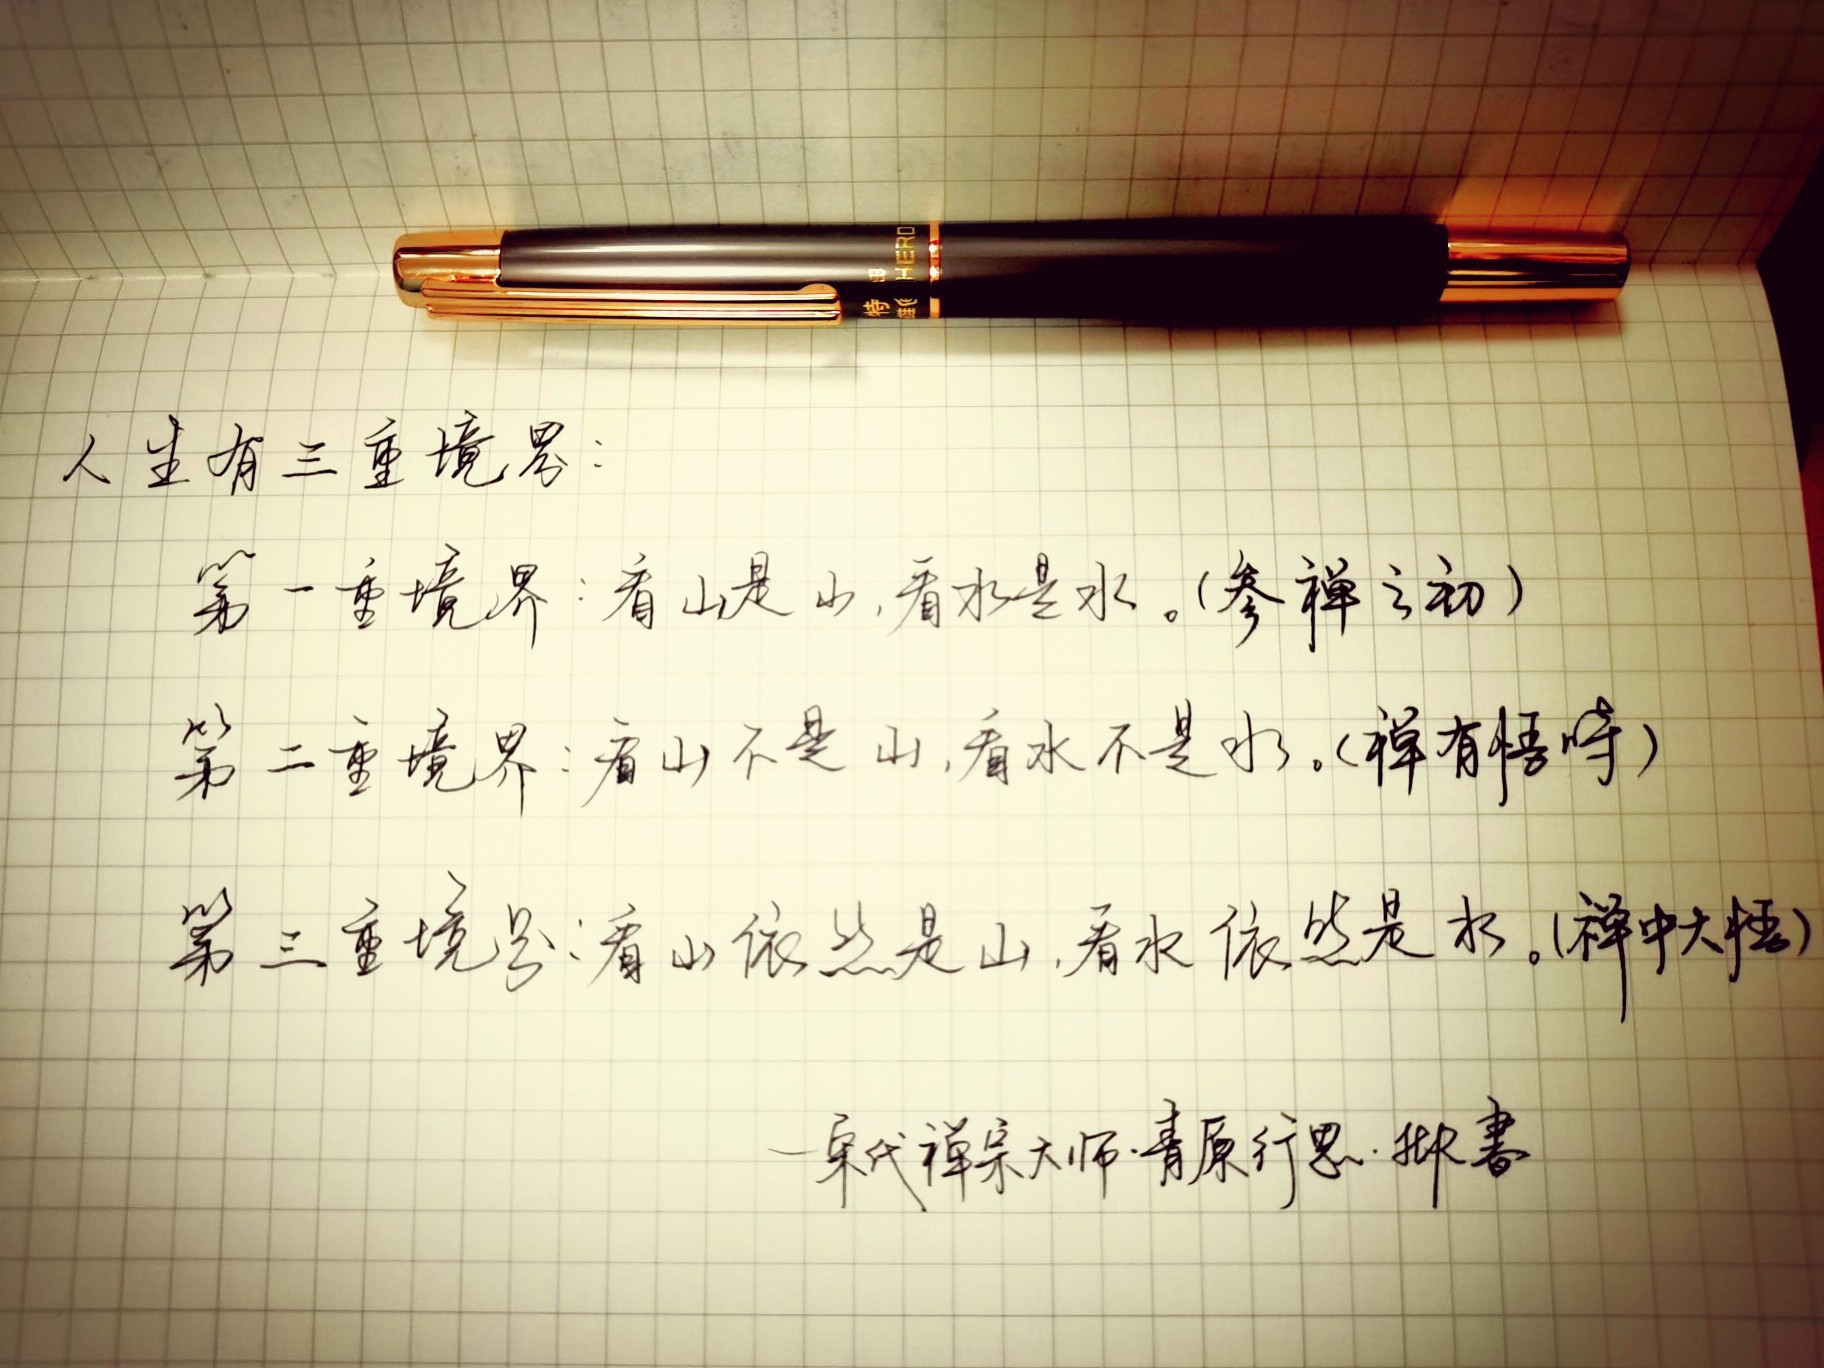 HERO
特
雄
人生有三重境界：
第一重境界：看山是山，看水是水。（参禅之初）
第二重境界：看山不是山，看水不是水。（禅有悟时）
第三重境界：看山依然是山，看水依然是水。（禅中大悟）
—宋代禅宗大师·青原行思·